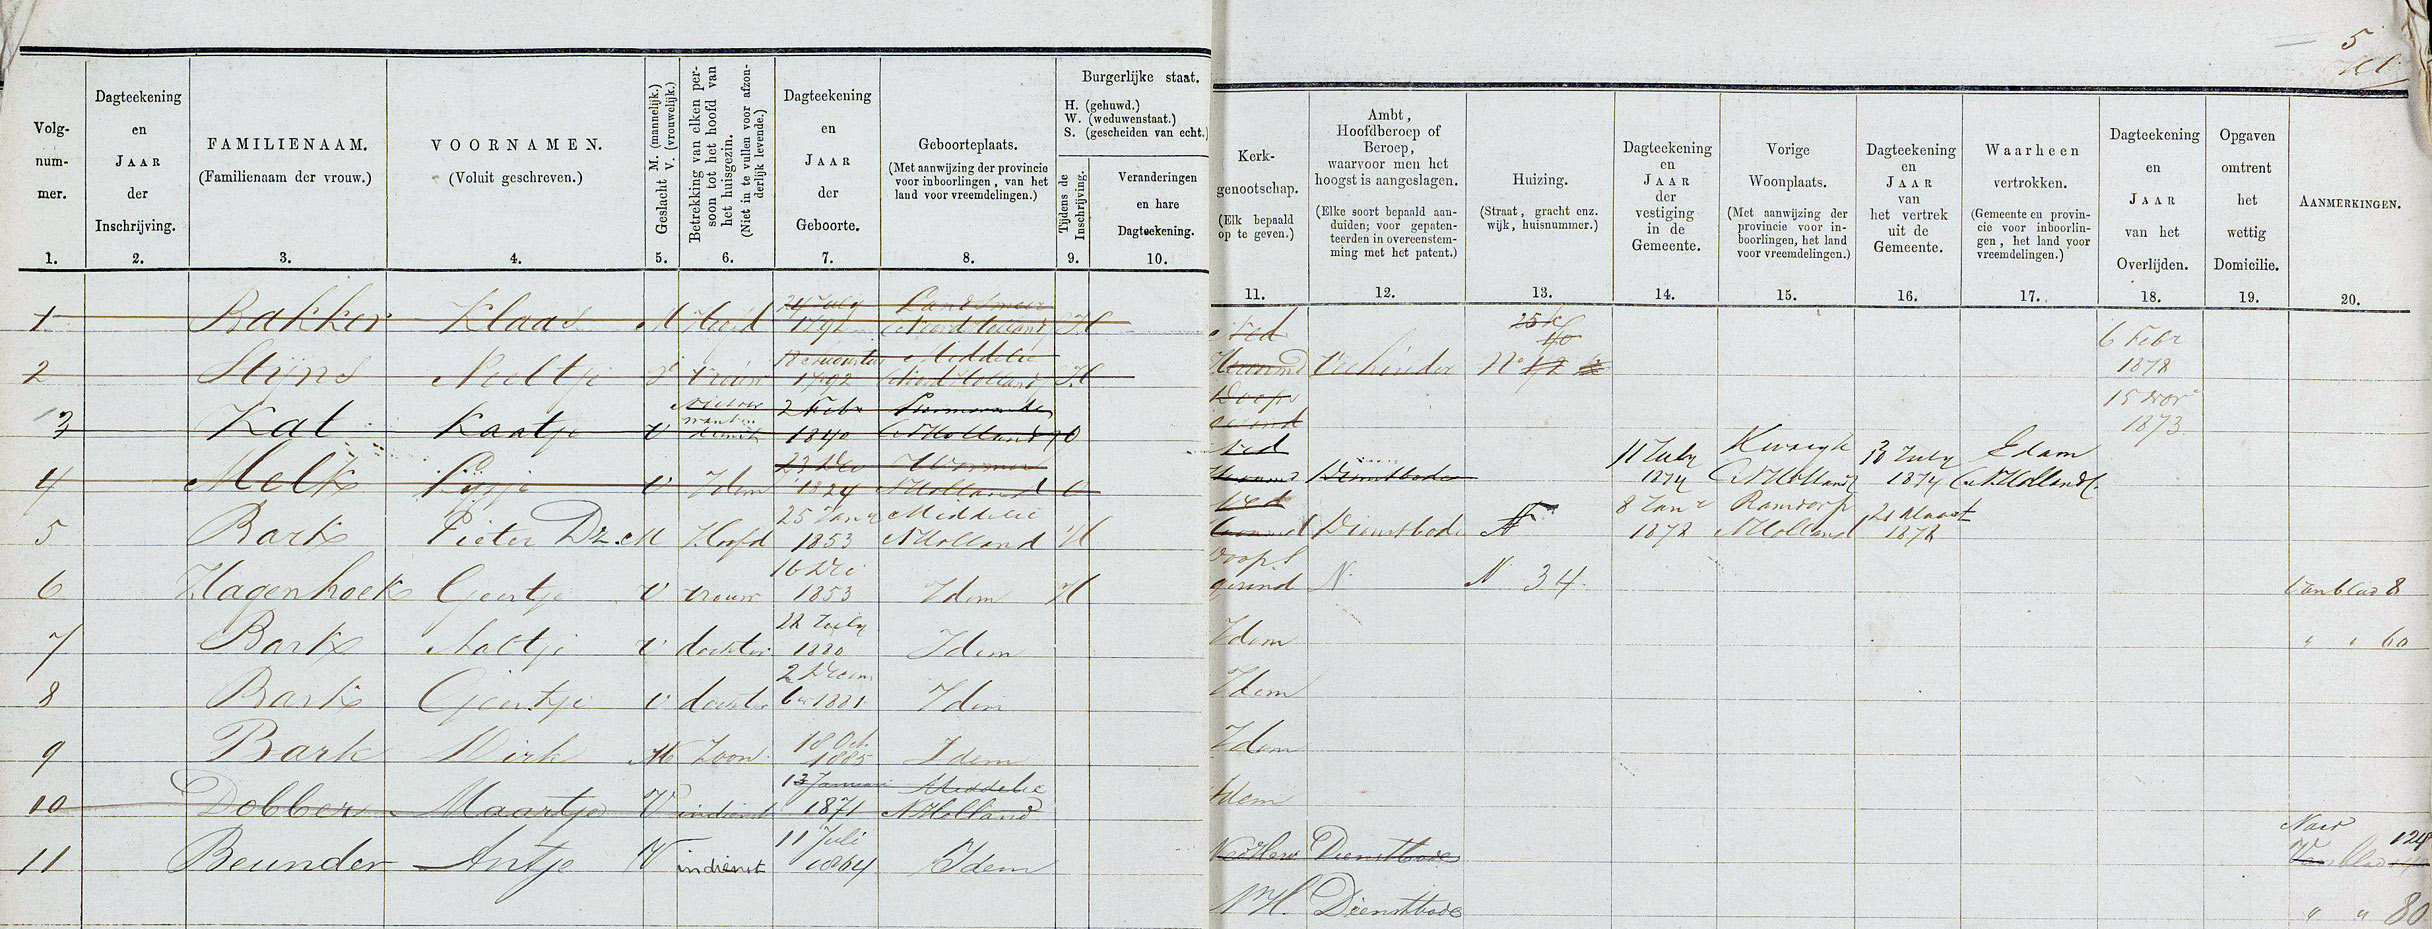 5
Volg-
num-
mer.
1.
Dagteekening
en
JAAR
der
Inschrijving.
2.
FAMILIENAAM.
(Familienaam der vrouw.)
3.
VOORNAMEN.
(Voluit geschreven.)
4.
Geslacht M. (mannelijk.)
V. (vrouwelijk.)
5.
Betrekking van elken per-
soon tot het hoofd van
het huisgezin.
(Niet in te vullen voor afzon-
derlijk levende.)
6.
Dagteekening
en
JAAR
der
Geboorte.
7.
Geboorteplaats.
(Met aanwijzing der provincie
voor inboorlingen, van het
land voor vreemdelingen.)
8.
Burgerlijke staat.
H. (gehuwd.)
W. (weduwenstaat.)
S. (gescheiden van echt.)
Tijdens de
Inschrijving.
9.
Veranderingen
en hare
Dagteekening.
10.
Kerk-
genootschap.
(Elk bepaald
op te geven.)
11.
Ambt,
Hoofdberoep of
Beroep,
waarvoor men het
hoogst is aangeslagen.
(Elke soort bepaald aan-
duiden; voor gepaten-
teerden in overeenstem-
ming met het patent.)
12.
Huizing.
(Straat, gracht enz.
wijk, huisnummer.)
13.
Dagteekening
en
JAAR
der
vestiging
in de
Gemeente.
14.
Vorige
Woonplaats.
(Met aanwijzing der
provincie voor in-
boorlingen, het land
voor vreemdelingen.)
15.
Dagteekening
en
JAAR
van
het vertrek
uit de
Gemeente.
16.
Waarheen
vertrokken.
(Gemeente en provin-
cie voor inboorlin-
gen, het land voor
vreemdelingen.)
17.
Dagteekening
en
JAAR
van het
Overlijden.
18.
Opgaven
omtrent
het
wettig
Domicilie.
19.
AANMERKINGEN.
20.
1 Bakker Klaas M Hoofd July Landsmeer (Noord Holland) H
2 Stijns Neeltje V vrouw 1792 Middelie (Noord Holland) H
3 Kat Kaatje V 2 Febr 1840 Purmerende (N Holland)
4 Melk V Idem 1824 Wormer N Holland
5 Bark Pieter Dz. M Hoofd 25 Jan 1853 Middelie N Holland H
6 Hagenhoek Geertje V vrouw 16 Dec 1853 Idem H
7 Bark Aaltje V dochter 22 July 1880 Idem
8 Bark Geertje V dochter 2 Decem ber 1881 Idem
9 Bark Dirk M Zoon 18 Oct. 1885 Idem
10 Dobber Maartje V indienst 13 Januari 1871 Middelie N Holland
11 Beunder Antje V indienst 11 Juli 1864 Idem
Ned
Hervormd No 40
6 Febr
1878
Doops
gezind
15 Nov
1873
Ned
Dienstbode
11 July
1874
Kwadyk
(N Holland)
July
1874
Edam
(N. Holland)
Ned
Dienstbode
8 Jan
1878
Ransdorp
N Holland
21 Maart
1878
Doops
gezind N. N 34.
van blad 8
Idem
" " 60
Idem
Idem
Idem
Ned Herv Dienstbode
Naar 124
Van blad
N. H. Dienstbode
" " 80